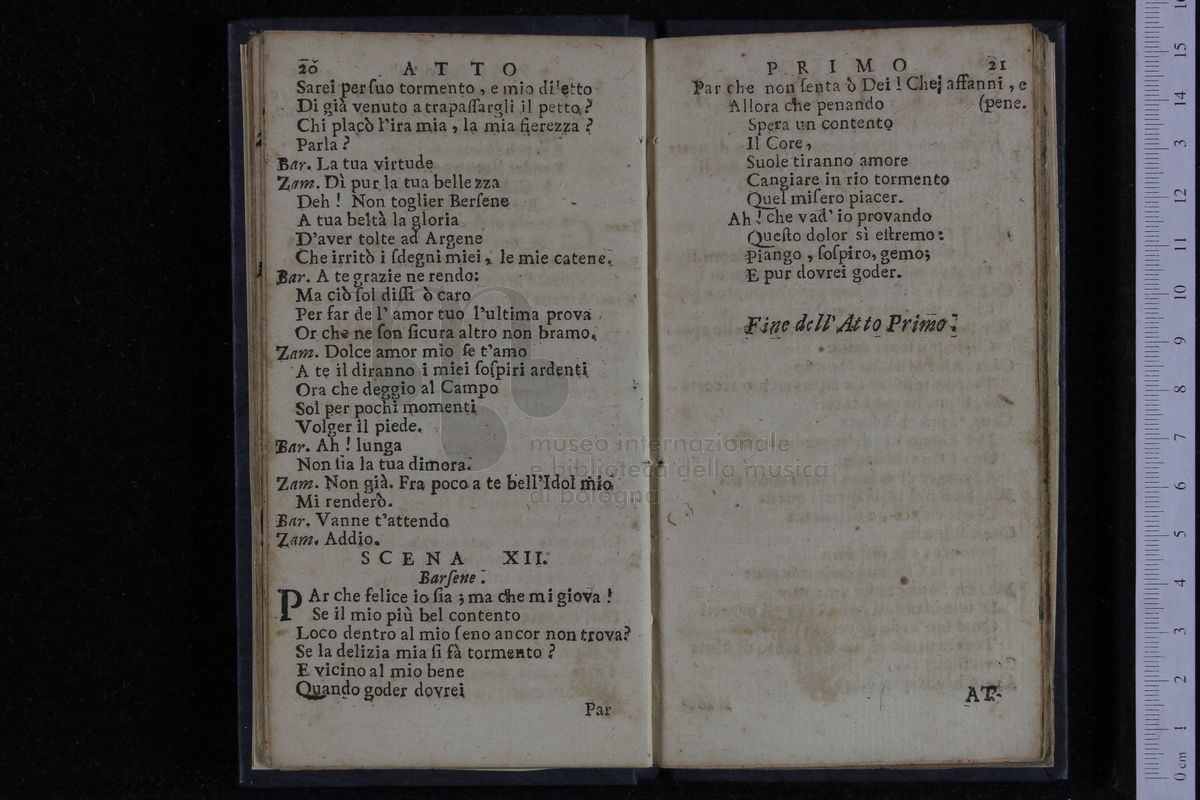 20 ATTO
Sarei per ſuo tormento, e mio diletto
Di già venuto a trapaſſargli il petto?
Chi placò l'ira mia, la mia fierezza?
Parla?
Bar. La tua virtude
Zam. Dì pur la tua bellezza
Deh! Non toglier Berſene
A tua beltà la gloria
D'aver tolte ad Argene
Che irritò i ſdegni miei, le mie catene.
Bar. A te grazie ne rendo:
Ma ciò ſol diſſi ò caro
Per far de l'amor tuo l'ultima prova
Or che ne ſon ſicura altro non bramo.
Zam. Dolce amor mio ſe t'amo
A te il diranno i miei ſoſpiri ardenti
Ora che deggio al Campo
Sol per pochi momenti
Volger il piede.
Bar. Ah! lunga
Non ſia la tua dimora.
Zam. Non già. Fra poco a te bell'Idol mio
Mi renderò.
Bar. Vanne t'attendo
Zam. Addio.
SCENA XII.
Barſene.
PAr che felice io ſia; ma che mi giova!
Se il mio più bel contento
Loco dentro al mio ſeno ancor non trova?
Se la delizia mia ſi fà tormento?
E vicino al mio bene
Quando goder dovrei
Par
PRIMO 21
Par che non ſenta ò Dei! Che affanni, e
Allora che penando (pene.
Spera un contento
Il Core,
Suole tiranno amore
Cangiare in rio tormento
Quel miſero piacer.
Ah! che vad' io provando
Queſto dolor sì eſtremo:
Piango, ſoſpiro, gemo;
E pur dovrei goder.
Fine dell'Atto Primo.
AT-
museo internazionale
e biblioteca della musica
di bologna
0 cm 1 2 3 4 5 6 7 8 9 10 11 12 13 14 15 16